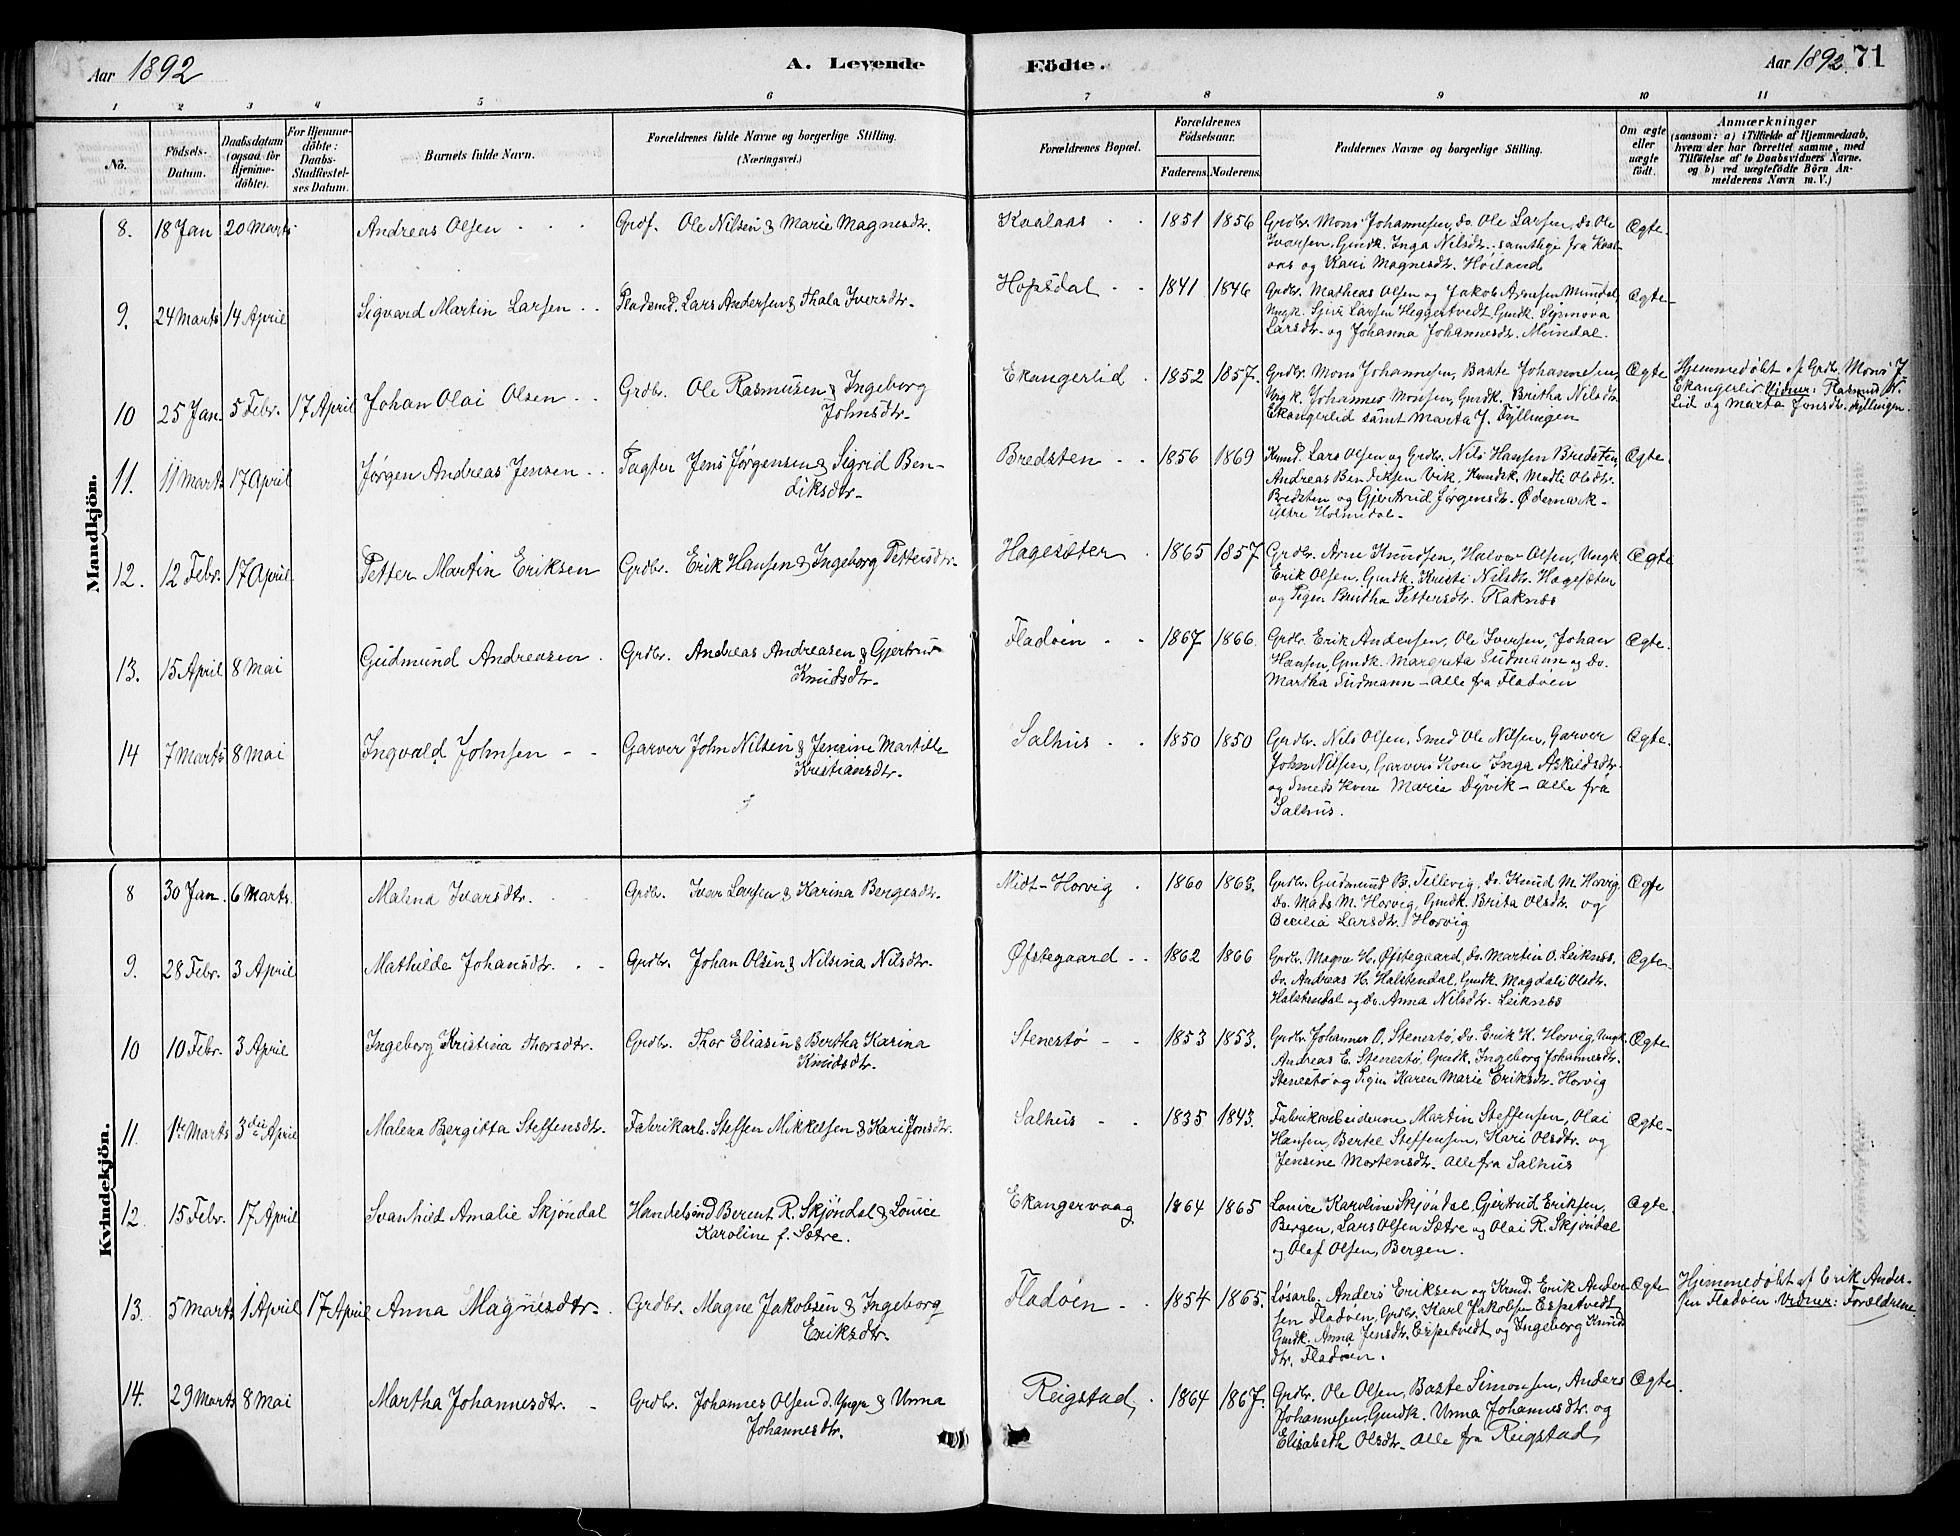 Aar 1892 A. Levende Födte. Aar 1892. 71
1 2 3 4 5 6 7 8 9 10 11
No.
Födsels-
Datum.
Daabsdatum
(ogsaa for
Hjemme-
döbte).
For Hjemme-
döbte:
Daabs-
Stadfæstel-
ses Datum.
Barnets fulde Navn.
Forældrenes fulde Navne og borgerlige Stilling.
(Næringsvei.)
Forældrenes Bopæl.
Forældrenes
Födselsaar.
Faderens. Moderens.
Faddernes Navne og borgerlige Stilling.
Om ægte
eller
uægte
födt.
Anmærkninger
(saasom: a) i Tilfælde af Hjemmedaab,
hvem der har forrettet samme, med
Tilföielse af to Daabsvidners Navne.
og b) ved uægtefödte Börn An-
melderens Navn m. V.)
Mandkjön.
8. 18 Jan 20 Marts Andreas Olsen Grdf. Ole Nilsen & Marie Magnesdtr. Kaalaas 1851 1856 Grdbr. Mons Johannesen, Do. Ole Larsen, Do. Ole Ægte
Ivarsen, Gmdk. Inga Nilsdtr. samtlige fra Kaal-
aas og Kari Magnesdtr. Høiland
9. 24 Marts 14 April Sigvard Martin Larsen Pladsmd. Lars Andersen & Thala Iversdtr. Hopsdal 1841 1846 Grdbr. Mathias Olsen og Jakob Arnesen Mundal, Ægte
Ungk. Sjur Larsen Heggertvedt, Gmdk. Synnova
Larsdtr. og Johanna Johannesdtr. Mundal.
10 25 Jan. 5 Febr. 17 April Johan Olai Olsen Grdbr. Ole Rasmusen & Ingeborg
Johnsdtr. Ekangerlid 1852 1857. Grdbr. Mons Johannesen, Baste Johannesen, Ægte
Ungk. Johannes Monsen, Gmdk. Britha Nilsdtr.
Ekangerlid samt Marta J. Fyllingen
Hjemmedøbt af Grdbr. Mons J.
Ekangerlid Vidner: Rasmus N.
Lid og Marta Jonsdtr. Fyllingen.
11. 11 Marts 17 April Jørgen Andreas Jensen Pagter Jens Jørgensen & Sigrid Ben-
diksdtr. Bredsten 1856 1869 Kmd. Lars Olsen og Grdbr. Nils Hansen Bredsten, Ægte
Andreas Bendiksen Vik, Kmdsk. Madli Olsdtr.
Bredsten og Gjertrud Jørgensdtr. Ødemark
Ytre Holmedal
12. 12 Febr. 17 April Petter Martin Eriksen Grdbr. Erik Hansen & Ingeborg Pettersdtr. Hagesæter 1865 1857 Grdbr. Arne Knudsen, Halvor Olsen, Ungk. Ægte
Erik Olsen, Gmdk. Kristi Nilsdtr. Hagesæter
og Pigen Britha Pettersdtr. Raknæs
13. 15 April 8 Mai Gudmund Andreasen Grdbr. Andreas Andreasen & Gjertrud
Knudsdtr. Fladøen 1867 1866. Grdbr. Erik Andersen, Ole Iversen, Johan Ægte
Hansen, Gmdk. Margreta Sudmann og Do.
Martha Sudmann - alle fra Fladøen
14 7 Marts 8 Mai Ingvald Johnsen Garver John Nilsen & Jensine Martille
Kristiansdtr. Salhus 1850 1850 Grdbr. Nils Olsen, Smed Ole Nilsen, Garver Ægte
John Nilsen, Garvers Kone Inga Askildsdtr.
og Smeds Kone Marie Dyvik - alle fra
Salhus.
Kvindekjön.
8 30 Jan. 6 Marts Malena Ivarsdtr. Grdbr. Ivar Larsen & Karina Bergesdtr. Midt-Horvig 1860 1863. Grdbr. Gudmund B. Tellevig, Do. Knud M. Horvig, Ægte
Do. Mads M. Horvig, Gmdk. Brita Olsdtr. og
Cecilia Larsdtr. Horvig
9. 28 Febr. 3 April Mathilde Johansdtr. Grdbr. Johan Olsen & Nilsina Nilsdtr. Øfstegaard 1862 1866 Grdbr. Magne H. Øfstegaard, Do. Martin O. Leiknes, Ægte
Do. Andreas H. Halstendal, Gmdk. Magdali Olsdtr.
Halstendal og Do. Anna Nilsdtr. Leiknæs
10 10 Febr. 3 April Ingeborg Kristina Thorsdtr. Grdbr. Thor Eliasen & Bertha Karina
Knudsdtr. Stenestø 1853 1853. Grdbr. Johannes O. Stenestø, Do. Erik K. Horvig, Ungk. Ægte
Andreas E. Stenestø, Gmdk. Ingeborg Johannesdtr.
Stenestø og Pigen Karen Marie Eriksdtr. Horvig
11. 1ste Marts 3die April Malena Bergitta Steffensdtr. Fabrikarb. Steffen Mikkelsen & Kari Jonsdtr. Salhus 1835 1843. Fabrikarbeiderne Martin Steffensen, Olai Ægte
Hansen, Bertel Steffensen, Kari Olsdtr. og
Jensine Mortensdtr. alle fra Salhus
12. 15 Febr. 17 April Svanhild Amalie Skjøndal Handelsmd Berent R. Skjøndal & Louice
Karoline f. Sætre. Ekangervaag 1864 1865 Louice Karoline Skjøndal, Gjertrud Eriksen, Ægte
Bergen, Lars Olsen Sætre og Olai R. Skjøndal
og Olaf Olsen, Bergen.
13. 5 Marts 1 April 17 April Anna Magnesdtr. Grdbr. Magne Jakobsen & Ingeborg
Eriksdtr. Fladøen 1854 1865. Løsarb. Anders Eriksen og Kmd. Erik Ander- Ægte
sen Fladøen, Grdbr. Karl Jakobsen Espetvedt,
Gmdk. Anna Jensdtr. Espetvedt og Ingeborg Knuds
dtr. Fladøen.
Hjemmedøbt af Erik Ander-
sen Fladøen Vidner: Forældrene
14. 29 Marts 8 Mai Martha Johannesdtr. Grdbr. Johannes Olsen d. Yngre & Unna
Johannesdtr. Reigstad 1864 1867. Grdbr. Ole Olsen, Baste Simonsen, Anders Ægte
Johannesen, Gmdk. Unna Johannesdtr. og
Elisabeth Olsdtr. alle fra Reigstad